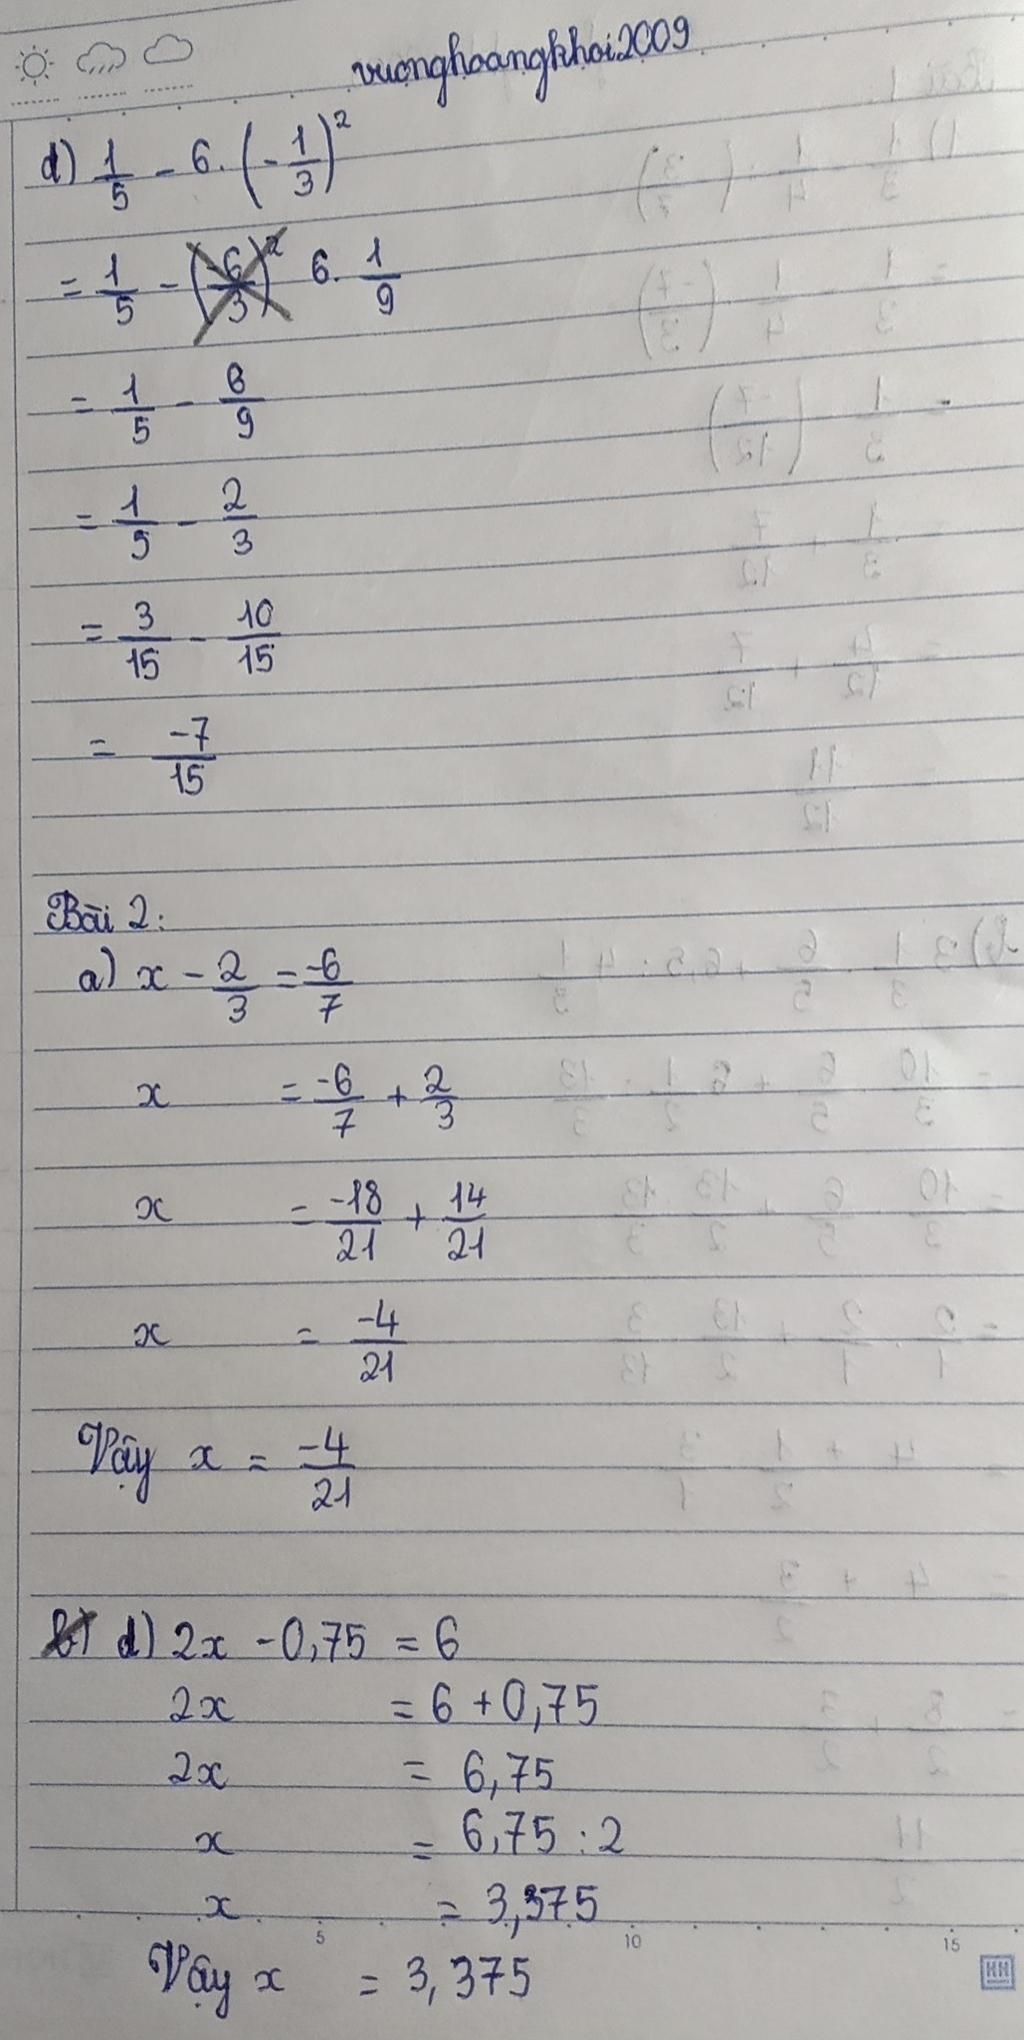 vuonghoangkhoi2009
d) 1/5 - 6. (-1/3)²
= 1/5 - 6. 1/9
= 1/5 - 6/9
= 1/5 - 2/3
= 3/15 - 10/15
= -7/15
Bài 2:
a) x - 2/3 = -6/7
x = -6/7 + 2/3
x = -18/21 + 14/21
x = -4/21
Vậy x = -4/21
d) 2x - 0,75 = 6
2x = 6 + 0,75
2x = 6,75
x = 6,75 : 2
x = 3,375
5 10 15
Vậy x = 3,375